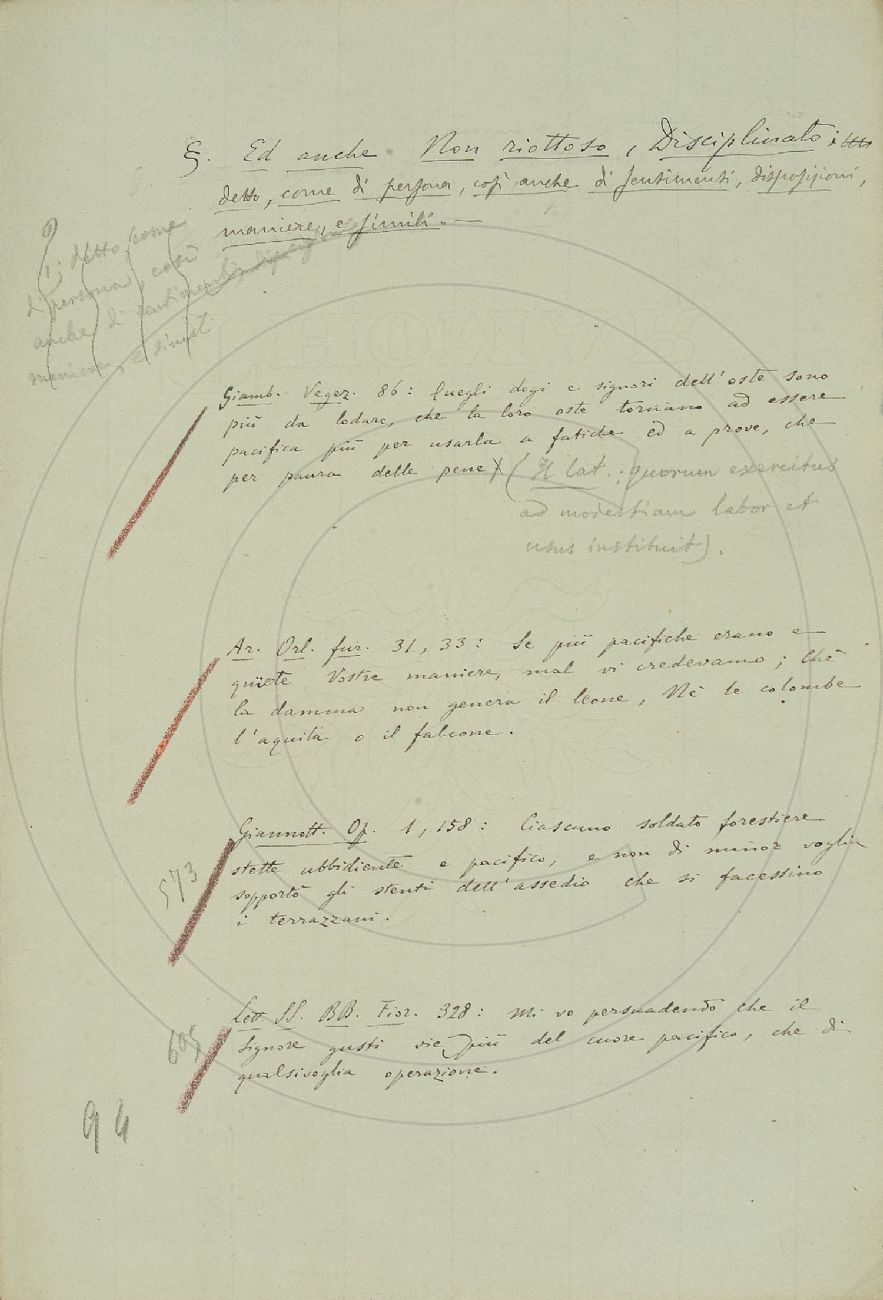 §. Ed anche Non riottoso, Disciplinato;
detto, come di persona, così anche di sentimenti, disposizioni,
maniere, e simili. —
; detto come
di persona, così
anche di sentimenti, disposizioni
maniere, e simil
Giamb. Vegez. 86: Quegli dogi e signori dell'oste sono
più da lodare, che la loro oste tornano ad essere
pacifica più per usarla a fatiche ed a prove, che
per paura delle pene (Il lat.: quorum exercitus
ad modestiam labor et
usus instituit).
Ar. Orl. fur. 31, 33: Se più pacifiche erano e
quiete Vostre maniere, mal vi credevamo; Chè
la damma non genera il leone, Nè le colombe
l'aquila o il falcone.
Giannott. Op. 1, 158: Ciascuno soldato forestiere
stette ubbidiente e pacifico, e non di minor voglia
573
sopportò gli stenti dell'assedio che si facessino
i terrazzani.
Lett. SS. BB. Fior. 328: Mi vo persuadendo che il
605
Signore gusti vie più del cuore pacifico, che di
qualsivoglia operazione.
94